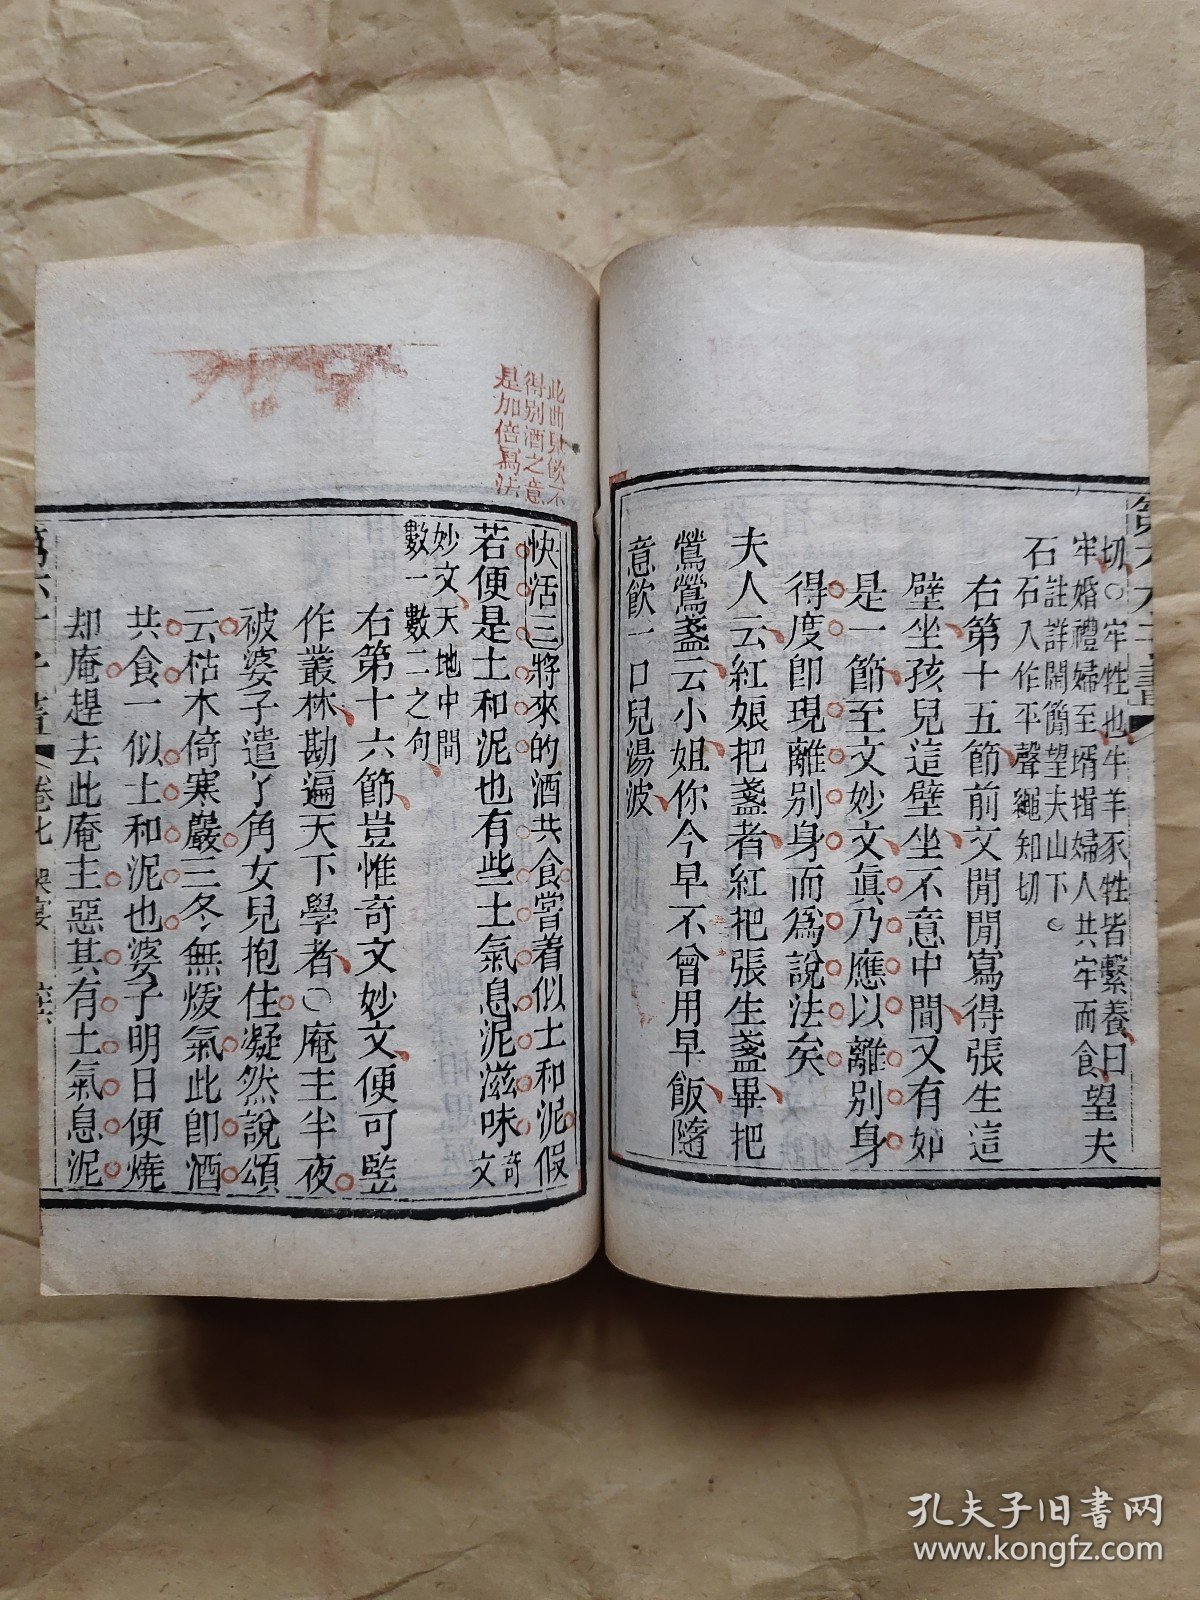 切○牢牲也牛羊豕牲皆繫養曰
牢婚禮婦至壻揖婦人共牢而食
望夫
石
註詳開簡望夫山下
石入作平聲繩知切
右第十五節前文閒閒寫得張生這
壁坐孩兒這壁坐不意中間又有如
是一節至文妙文眞乃應以離别身
得度卽現離别身而爲說法矣
夫人云紅娘把盞者紅把張生盞畢把
鶯鶯盞云小姐你今早不曾用早飯隨
意飮一口兒湯波
此曲兒飲不
得别酒之意
是加倍寫法
快活三將來的酒共食嘗着似土和泥假
若便是土和泥也有些土氣息泥滋味
奇文
妙文天地中間
數一數二之句
右第十六節豈惟奇文妙文便可監
作叢林勘遍天下學者○庵主半夜
被婆子遣丫角女兒抱住凝然說頌
云枯木倚寒巖三冬無煖氣此卽酒
共食一似土和泥也婆子明日便燒
却庵趕去此庵主惡其有土氣息泥
第六才子書
卷七
孔夫子旧书网
www.kongfz.com